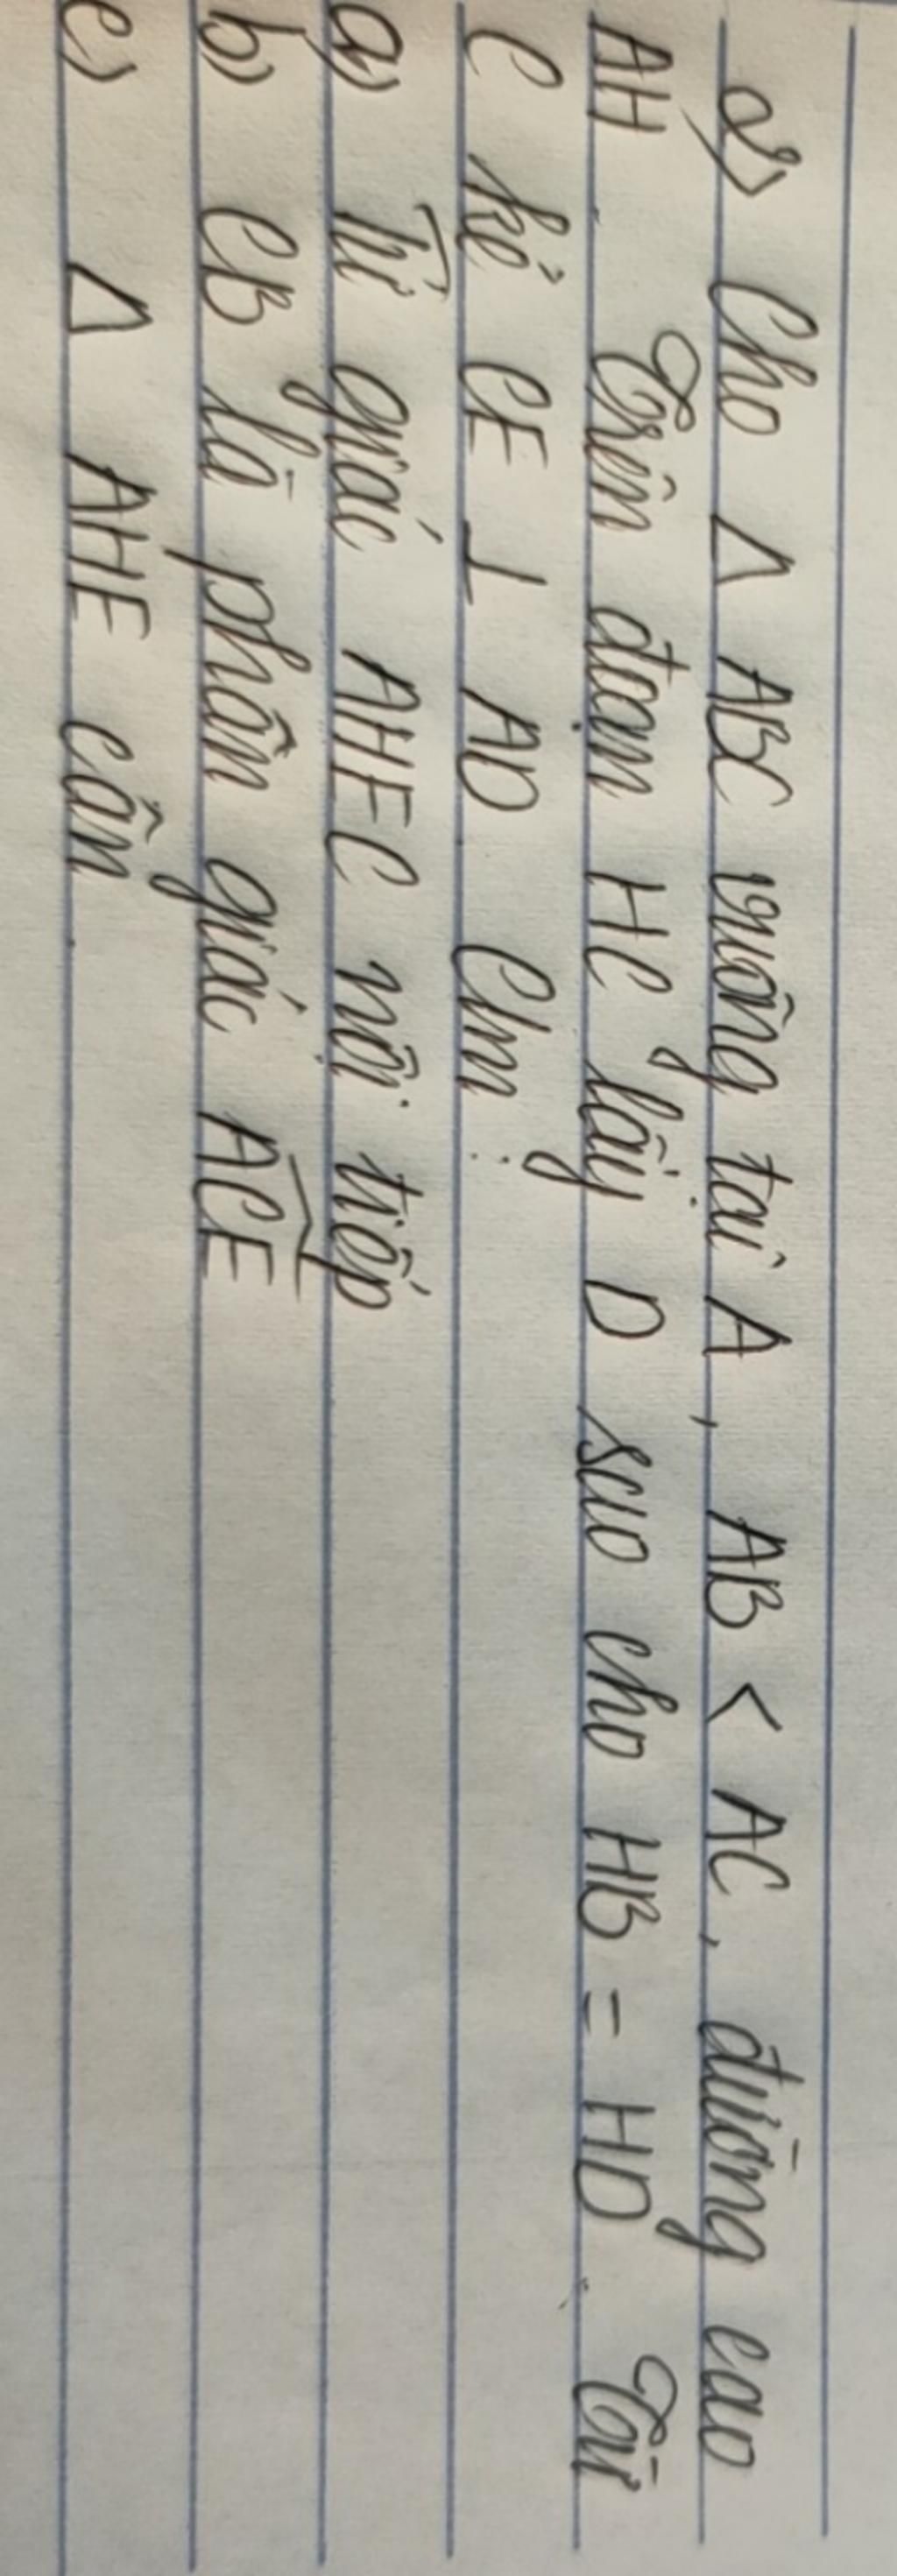 2) Cho Δ ABC vuông tại A, AB < AC, đường cao
AH. Trên đoạn HC lấy D sao cho HB = HD. Từ
C kẻ CE ⊥ AD. Cm:
a) Tứ giác AHEC nội tiếp
b) CB là phân giác ACE
c) Δ AHE cân.